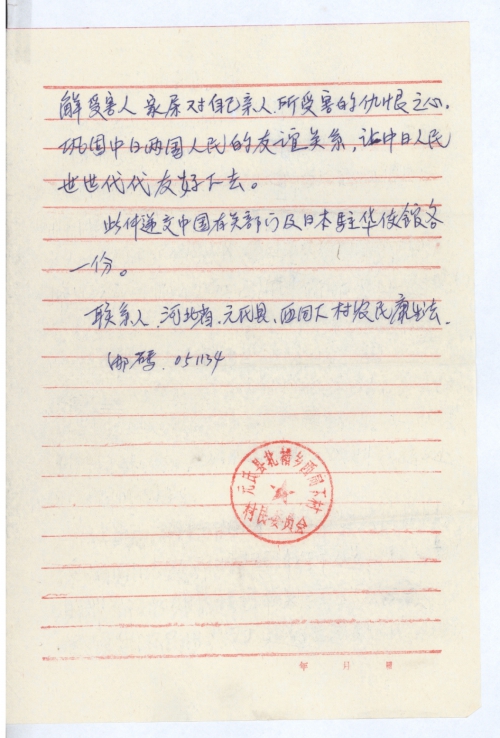 解受害人家属对自己亲人所受害的仇恨之心.
巩固中日两国人民的友谊关系,让中日人民
世世代代友好下去。
此件递交中国有关部门及日本驻华使馆各
一份。
联系人.河北省、元氏县、西同下村农民康
邮码.051134
元氏县北褚乡西同下村
村民委员会
年 月 日